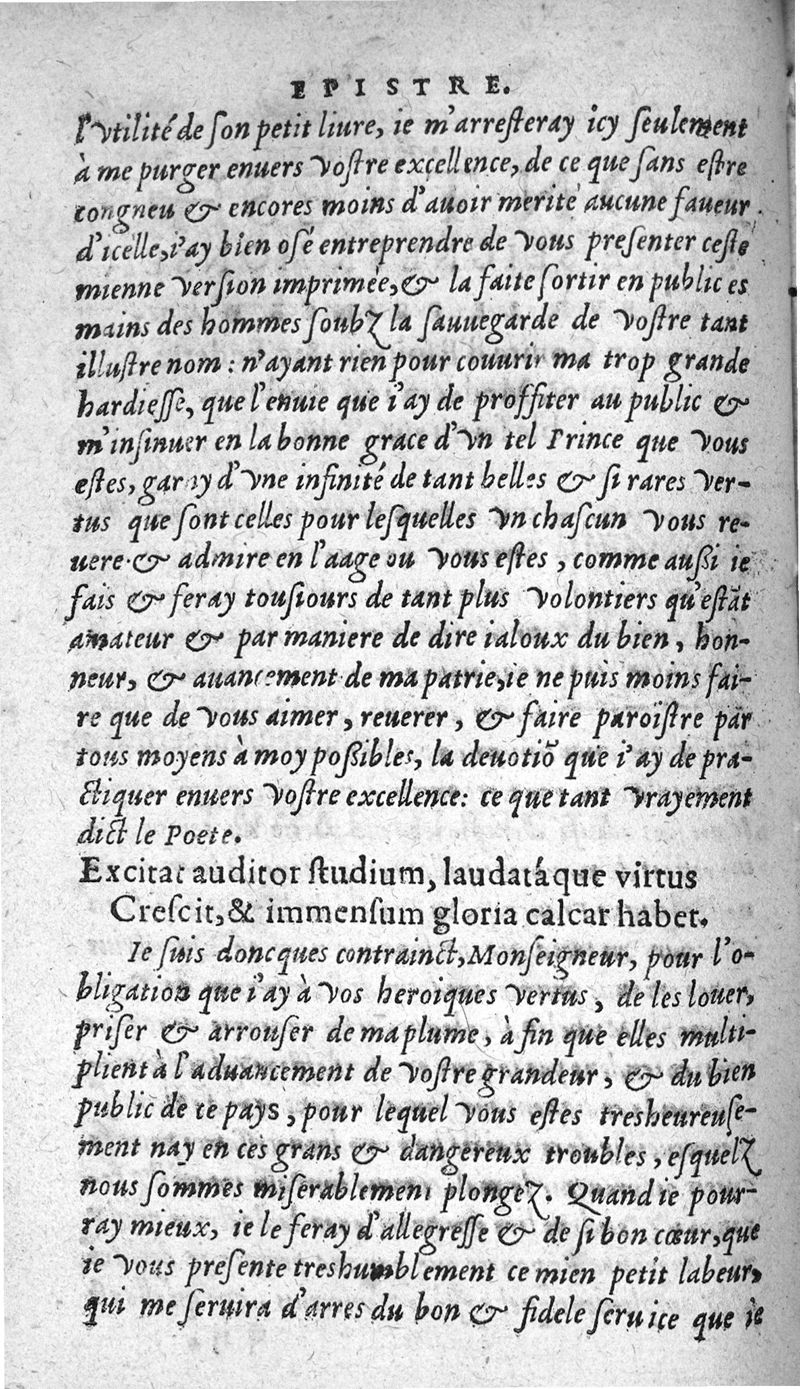 EPISTRE.
l'vtilité de son petit liure, ie m'arresteray icy seulement
à me purger enuers vostre excellence, de ce que sans estre
congneu & encores moins d'auoir merité aucune faueur
d'icelle, i'ay bien osé entreprendre de vous presenter ceste
mienne version imprimée, & la faite sortir en public es
mains des hommes soubz la sauuegarde de vostre tant
illustre nom : n'ayant rien pour couurir ma trop grande
hardiesse, que l'enuie que i'ay de proffiter au public &
m'insinuer en la bonne grace d'vn tel Prince que vous
estes, garny d'vne infinité de tant belles & si rares ver-
tus que sont celles pour lesquelles vn chascun vous re-
uere & admire en l'aage ou vous estes, comme außi ie
fais & feray tousiours de tant plus volontiers qu'estāt
amateur & par maniere de dire ialoux du bien, hon-
neur, & auancement de ma patrie, ie ne puis moins fai-
re que de vous aimer, reuerer, & faire paroistre par
tous moyens à moy poßibles, la deuotiō que i'ay de pra-
ctiquer enuers vostre excellence: ce que tant vrayement
dict le Poete.
Excitat auditor studium, laudatáque virtus
Crescit, & immensum gloria calcar habet.
Ie suis doncques contrainct, Monseigneur, pour l'o-
bligation que i'ay à vos heroiques vertus, de les louer,
priser & arrouser de ma plume, à fin que elles multi-
plient à l'aduancement de vostre grandeur, & du bien
public de ce pays, pour lequel vous estes tresheureuse-
ment nay en ces grans & dangereux troubles, esquelz
nous sommes miserablement plongez. Quand ie pour-
ray mieux, ie le feray d'allegresse & de si bon cœur, que
ie vous presente treshumblement ce mien petit labeur,
qui me seruira d'arres du bon & fidele seruice que ie